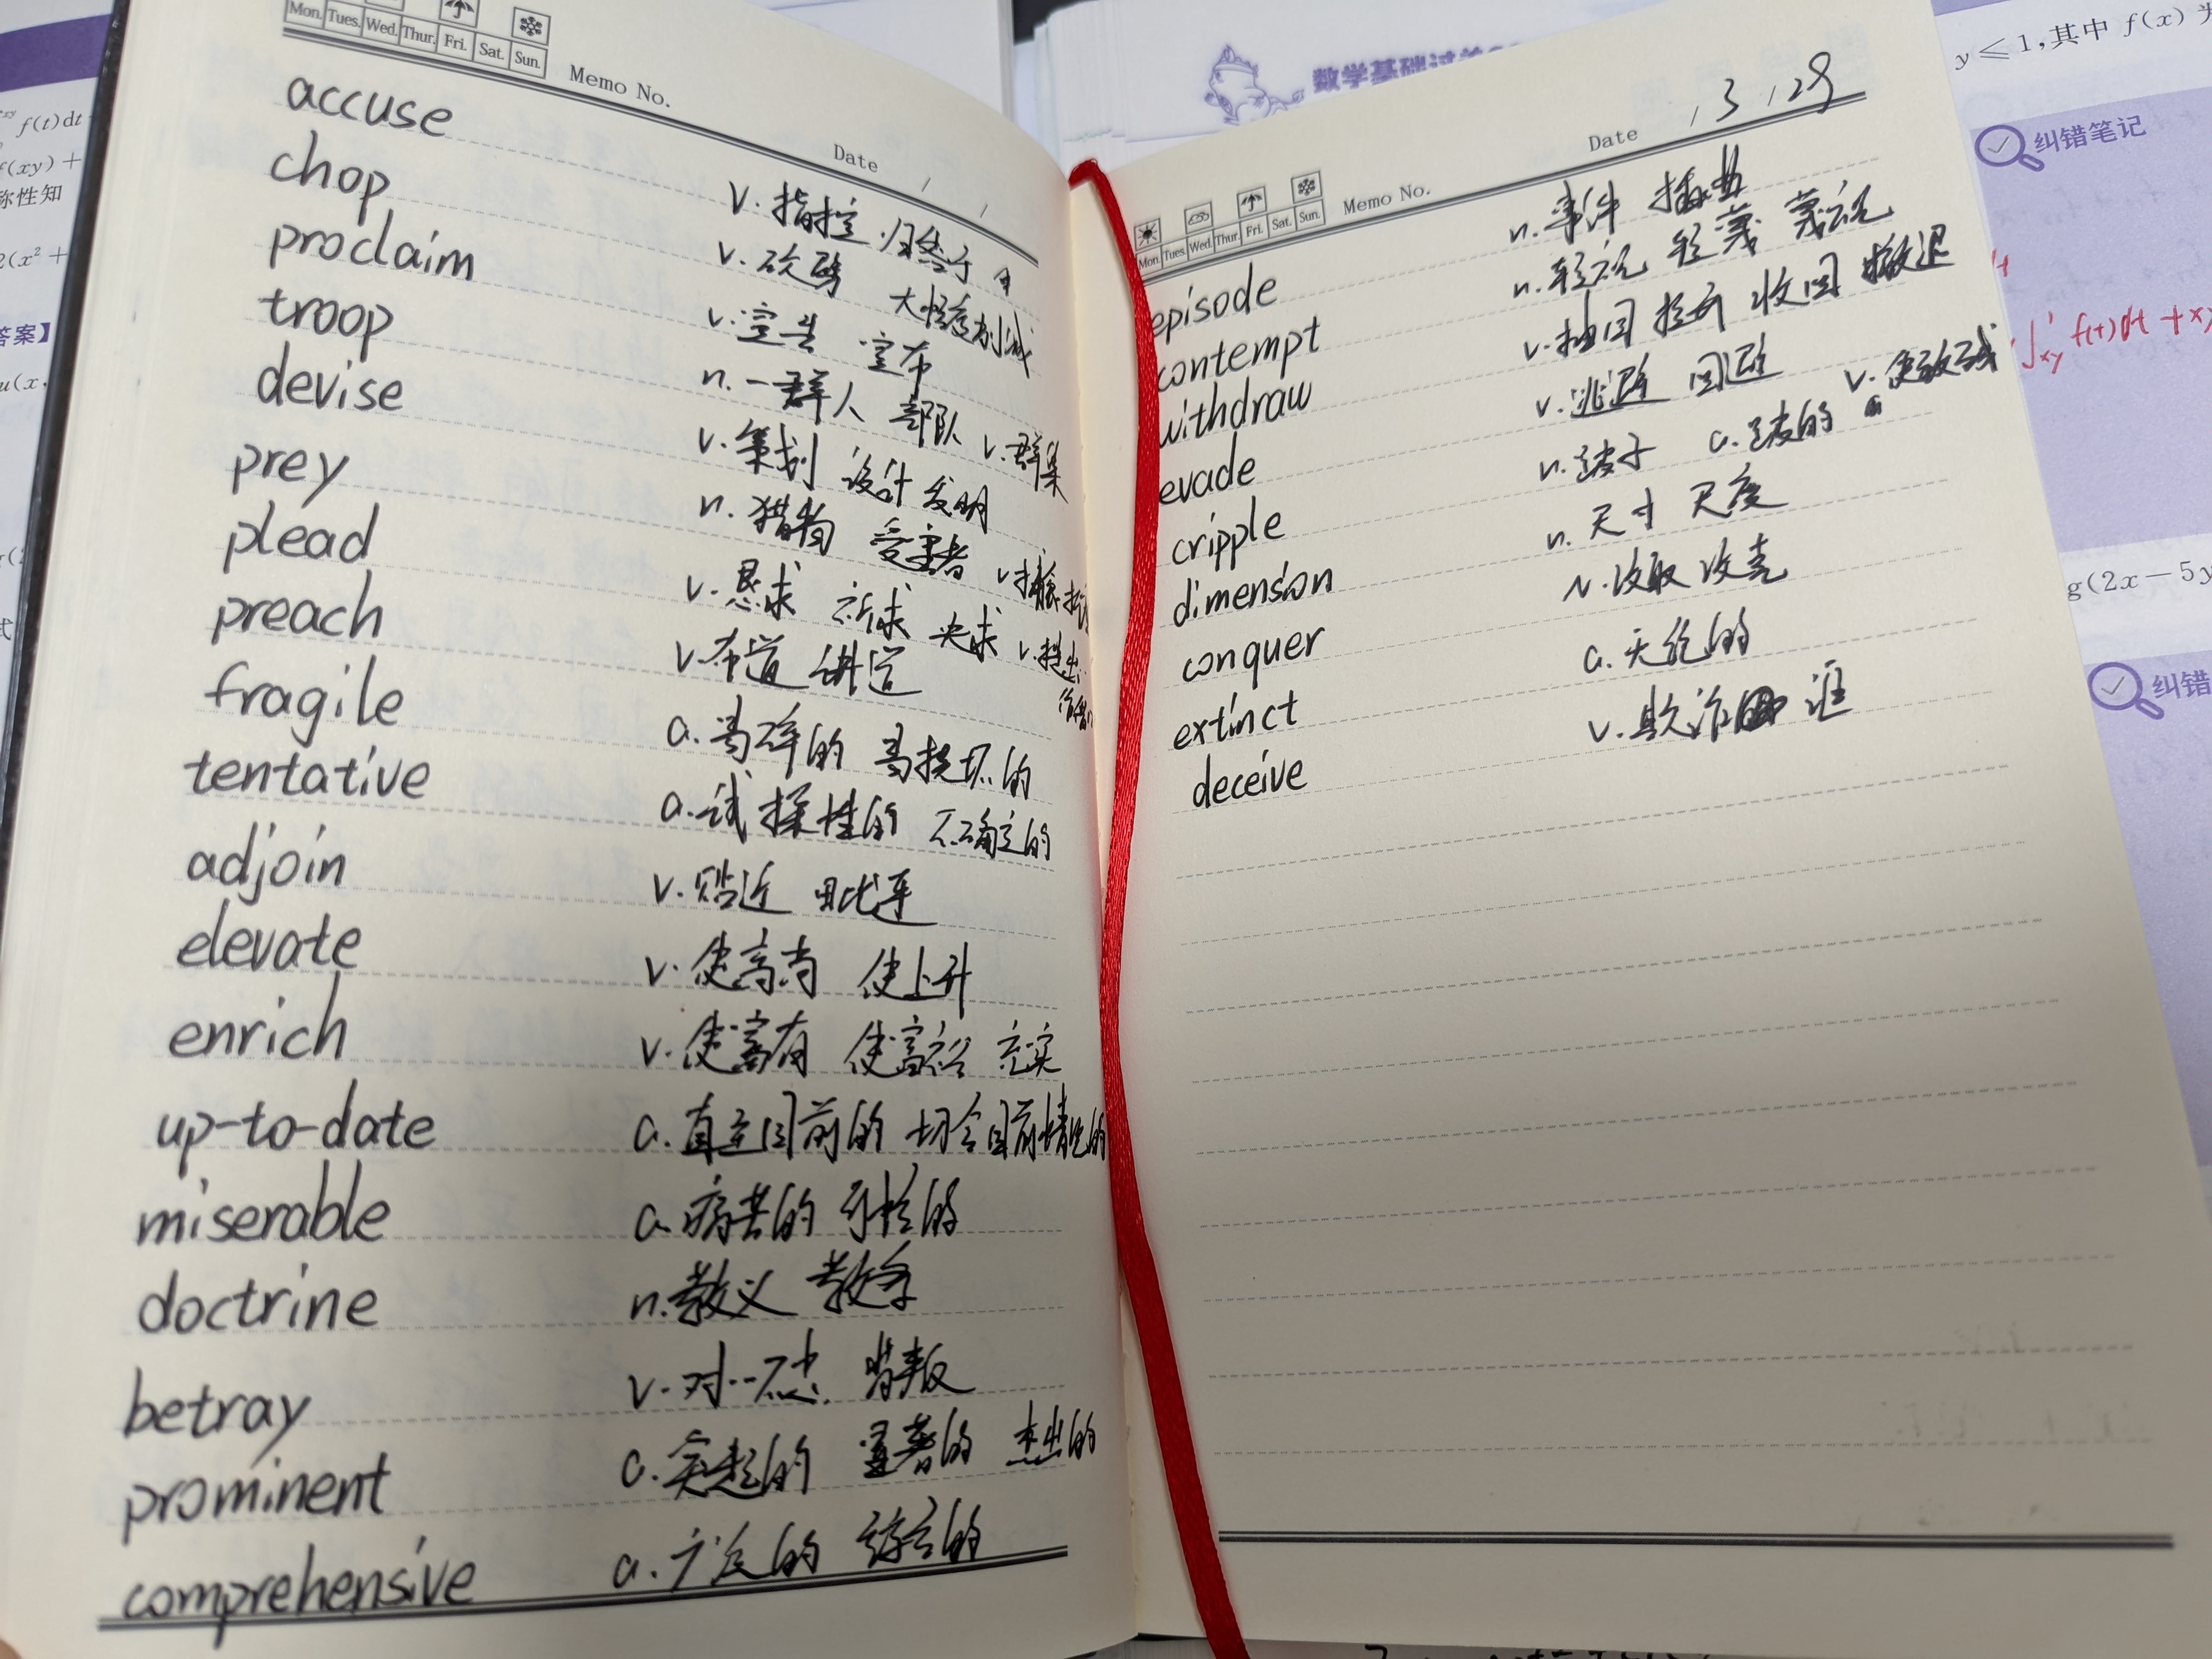 Mon. Tues. Wed. Thur. Fri. Sat. Sun.
Memo No.
Date / /
accuse v. 指控 归咎于
chop v. 砍 劈 大幅度削减
proclaim v. 宣告 宣布
troop n. 一群人 部队 v. 群集
devise v. 策划 设计 发明
prey n. 猎物 受害者 v.
plead v. 恳求 祈求 央求 v. 提出
preach v. 布道 讲道
fragile a. 易碎的 易损坏的
tentative a. 试探性的 不确定的
adjoin v. 贴近 毗连
elevate v. 使高尚 使上升
enrich v. 使富有 使富裕 充实
up-to-date a. 直至目前的 切合目前情况的
miserable a. 痛苦的 可怜的
doctrine n. 教义 教学
betray v. 对…不忠 背叛
prominent a. 突起的 显著的 杰出的
comprehensive a. 广泛的 综合的
Mon. Tues. Wed. Thur. Fri. Sat. Sun.
Memo No.
Date / 3 / 29
episode n. 事件 插曲
contempt n. 轻视 轻蔑 蔑视
withdraw v. 抽回 提取 收回 撤退
evade v. 逃避 回避
cripple n. 跛子 a. 跛的 v. 使残
dimension n. 尺寸 尺度
conquer v. 攻取 攻克
extinct a. 灭绝的
deceive v. 欺诈 诓
f(t)dt
f(xy)+
称性知
2(x²+
答案】
式
数学基础过关
y≤1,其中 f(x) 为
纠错笔记
∫ f(t)dt + x
g(2x−5y
纠错